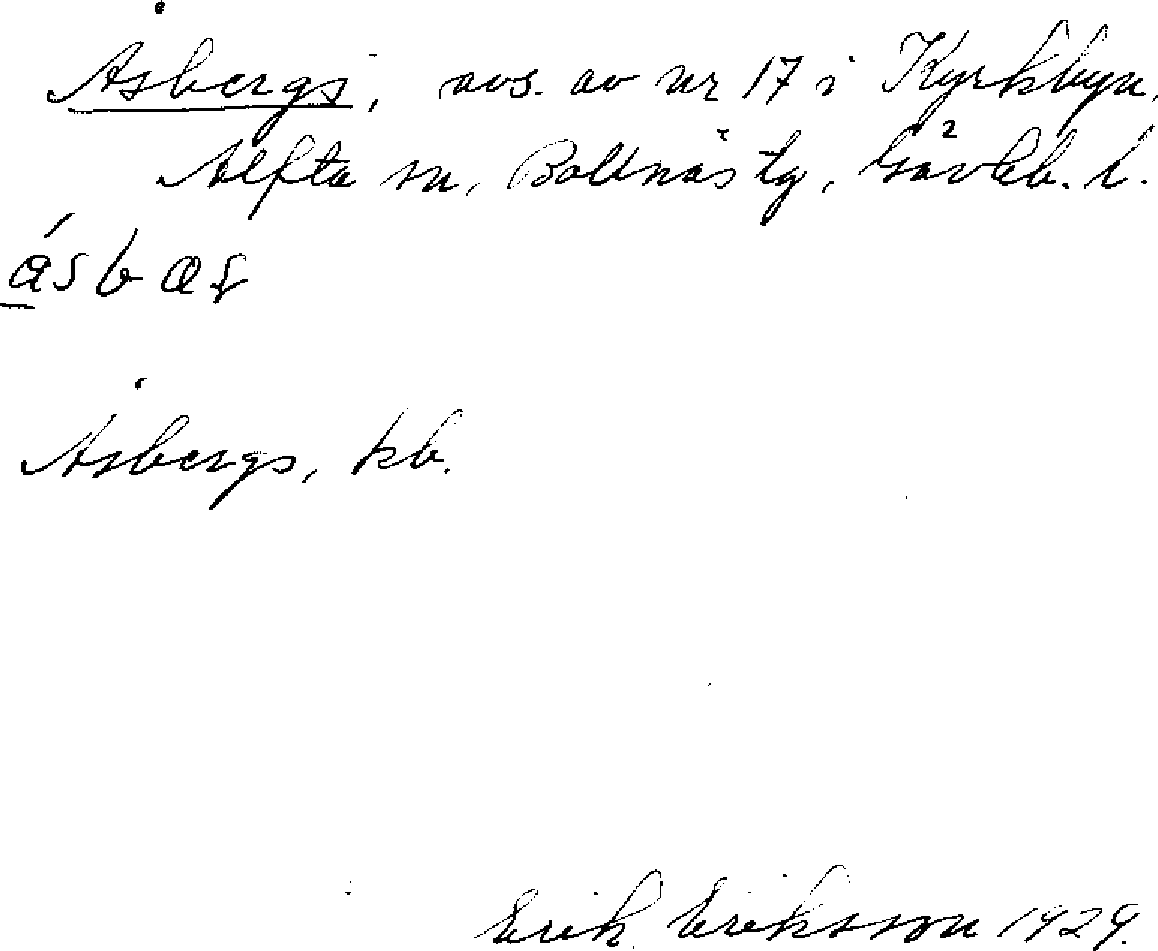 Åsbergs, avs. av nr 17 i Kyrkbyn,
Alfta sn, Bollnäs tg, Gävleb. l.
Åsbergs, kb.
Erik Eriksson 1929.